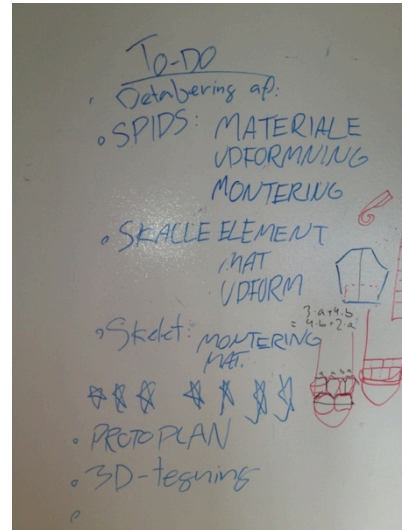 To-DO
Detaljering af:
SPIDS: MATERIALE
UDFORMNING
MONTERING
SKALLE ELEMENT
MAT
UDFORM
3·a+4·b
= 4·b+2·a
Skelet: MONTERING
MAT.
PROTOPLAN
3D-tegning